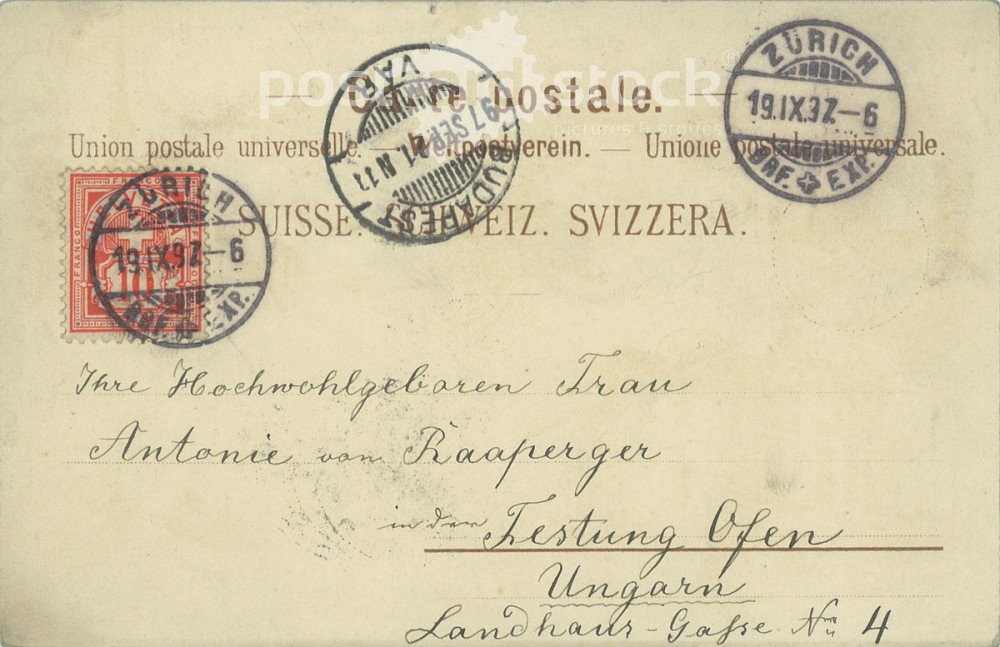 postcardstock
pictures & stories
Carte postale.
Union postale universelle. — Weltpostverein. — Unione postale universale.
SUISSE. SCHWEIZ. SVIZZERA.
ZÜRICH
19.IX.97.–6
BRF. EXP.
BUDAPEST
VÁR
97 SZEP. 21. N 11
FRANCO
10
ZÜRICH
19.IX.97.–6
BRF. EXP.
Ihre Hochwohlgeboren Frau
Antonie von Raaperger
in der Festung Ofen
Ungarn
Landhaus-Gasse No 4